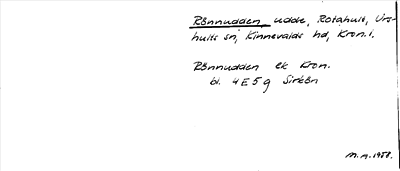 Rönnudden, udde, Rotahult, Uro-
hults sn, Kinnevalds hd, Kron.l.
Rönnudden ek Kron.
bl. 4E5g Sirkön
M.M. 1958.